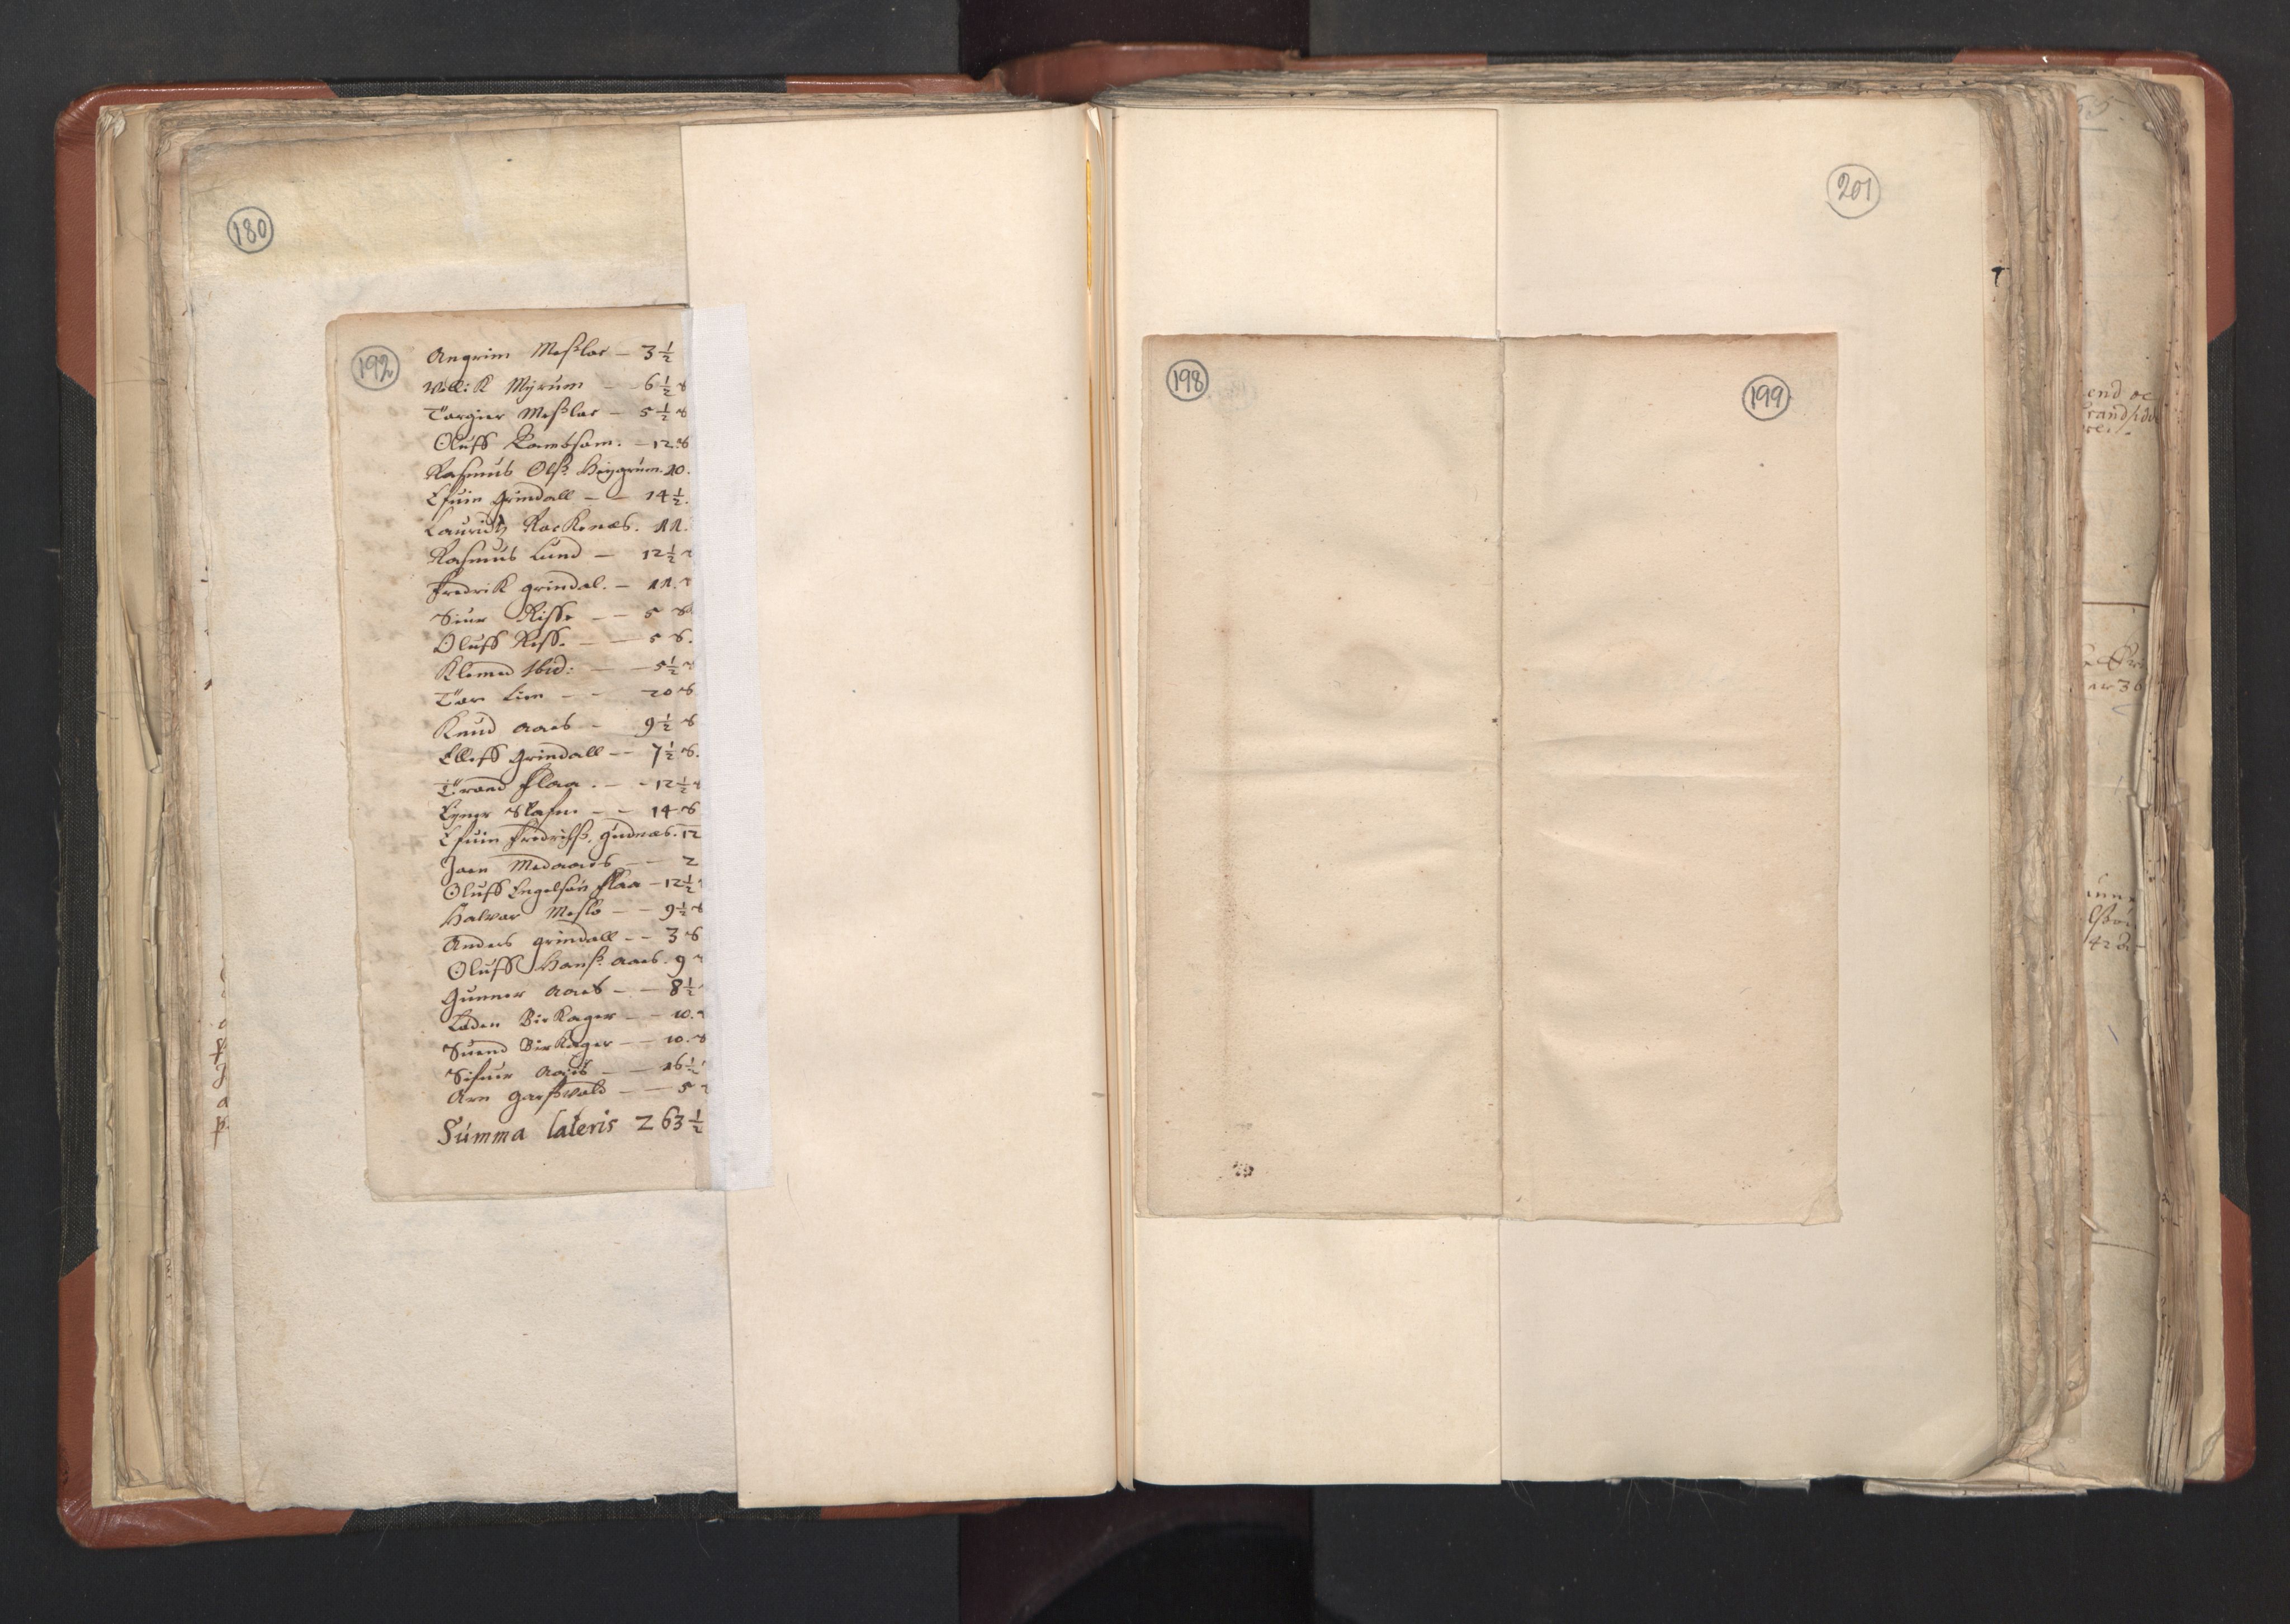 180
192
Angrim Mesloe – 3 ½
Vell: K Myrum – – 6 ½ s
Torgier Messloe – 5 ½ s
Oluff Kambsam: – 12 s
Rasmus Olss. Høygrum. 10.
Efuin Grindall – – 14 ½.
Lauridz Rockenes. 11.
Rasmus Lund – 12 ½
Fredrik grindal. – 11.
Siur Risse – – 5 s
Oluff Riss. – – 5 s.
Klemed Ibid: – – 5 ½
Tor Lien – – 20 s
Knud Aaes – 9 ½ s
Elleff Grindall – – 7 ½ s.
Trond Flaa. – – 12 ½
Eyner – – 14 s
Efuin Fredrichss. Gudnæs. 12
Joen Medaaes – – 2
Oluff Engelsøn Flaa – 12 ½
Halvor Meslo – – 9 ½ s
Anders grindall – – 3 s
Oluff Hanss. Aaes. 9
Gunner Aaes – – 8 ½
Loden Birkager – – 10.
Suend Birkager – – 10. s
Sifuer Aaes – – 16 ½
Arn Garssvold – – 5
Summa lateris 263 ½
198
199
201